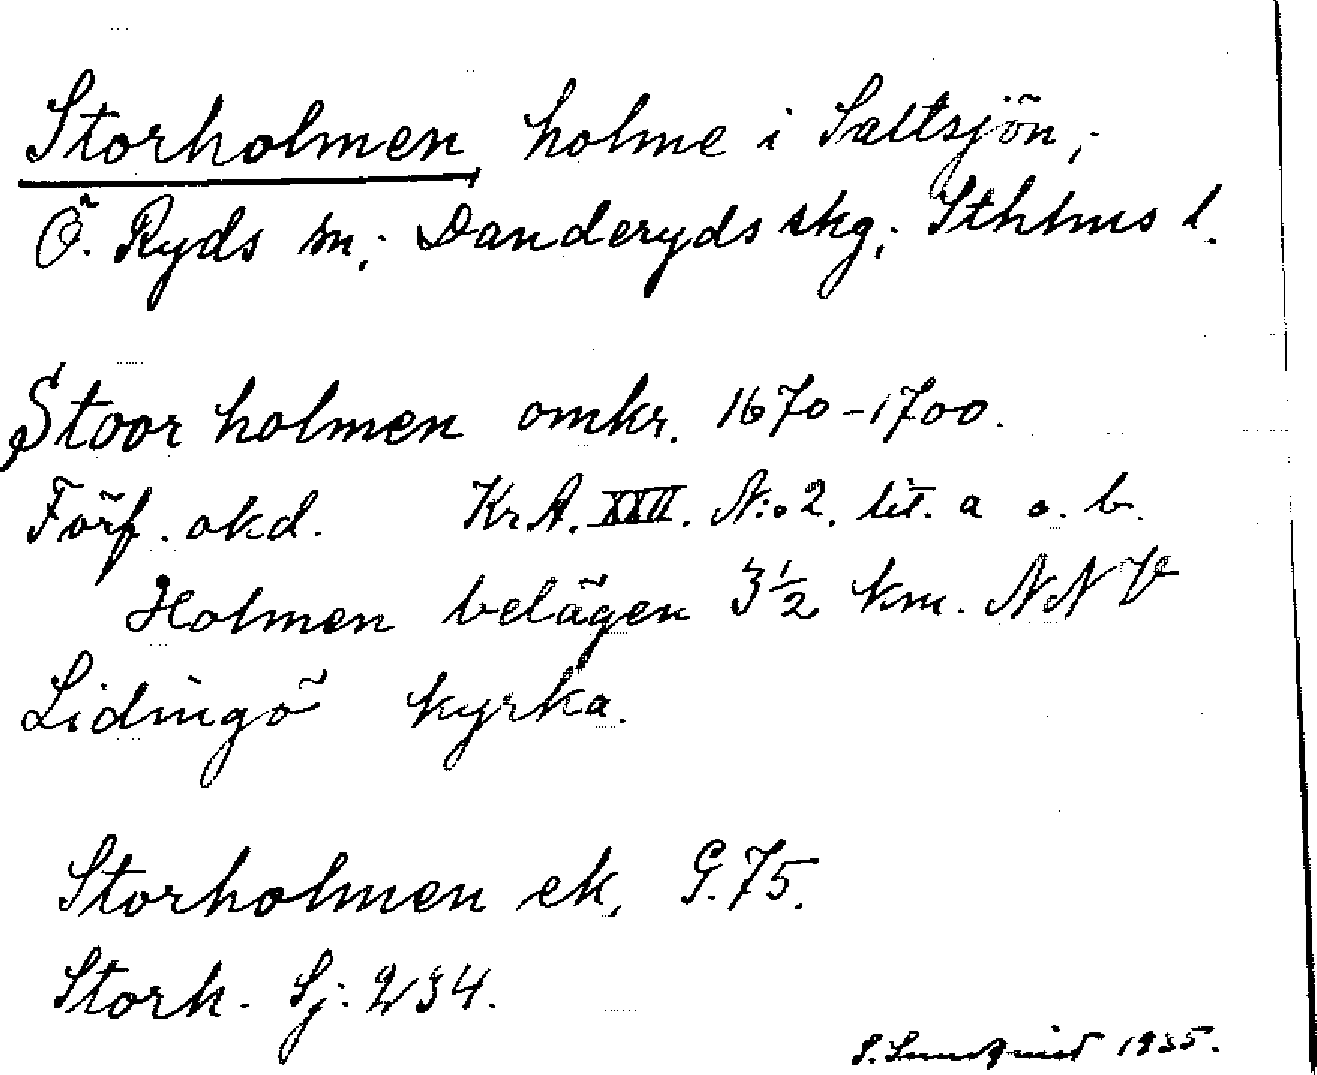 Storholmen, holme i Saltsjön,
Ö. Ryds sn; Danderyds skg; Sthlms l.
Stoor holmen omkr. 1670-1700.
Förf. okd. KrA. XXII. N:o 2. lit. a o. b.
Holmen belägen 3½ km. NNV
Lidingö kyrka.
Storholmen ek. G. 75.
Stork. Sj: 234.
1935.